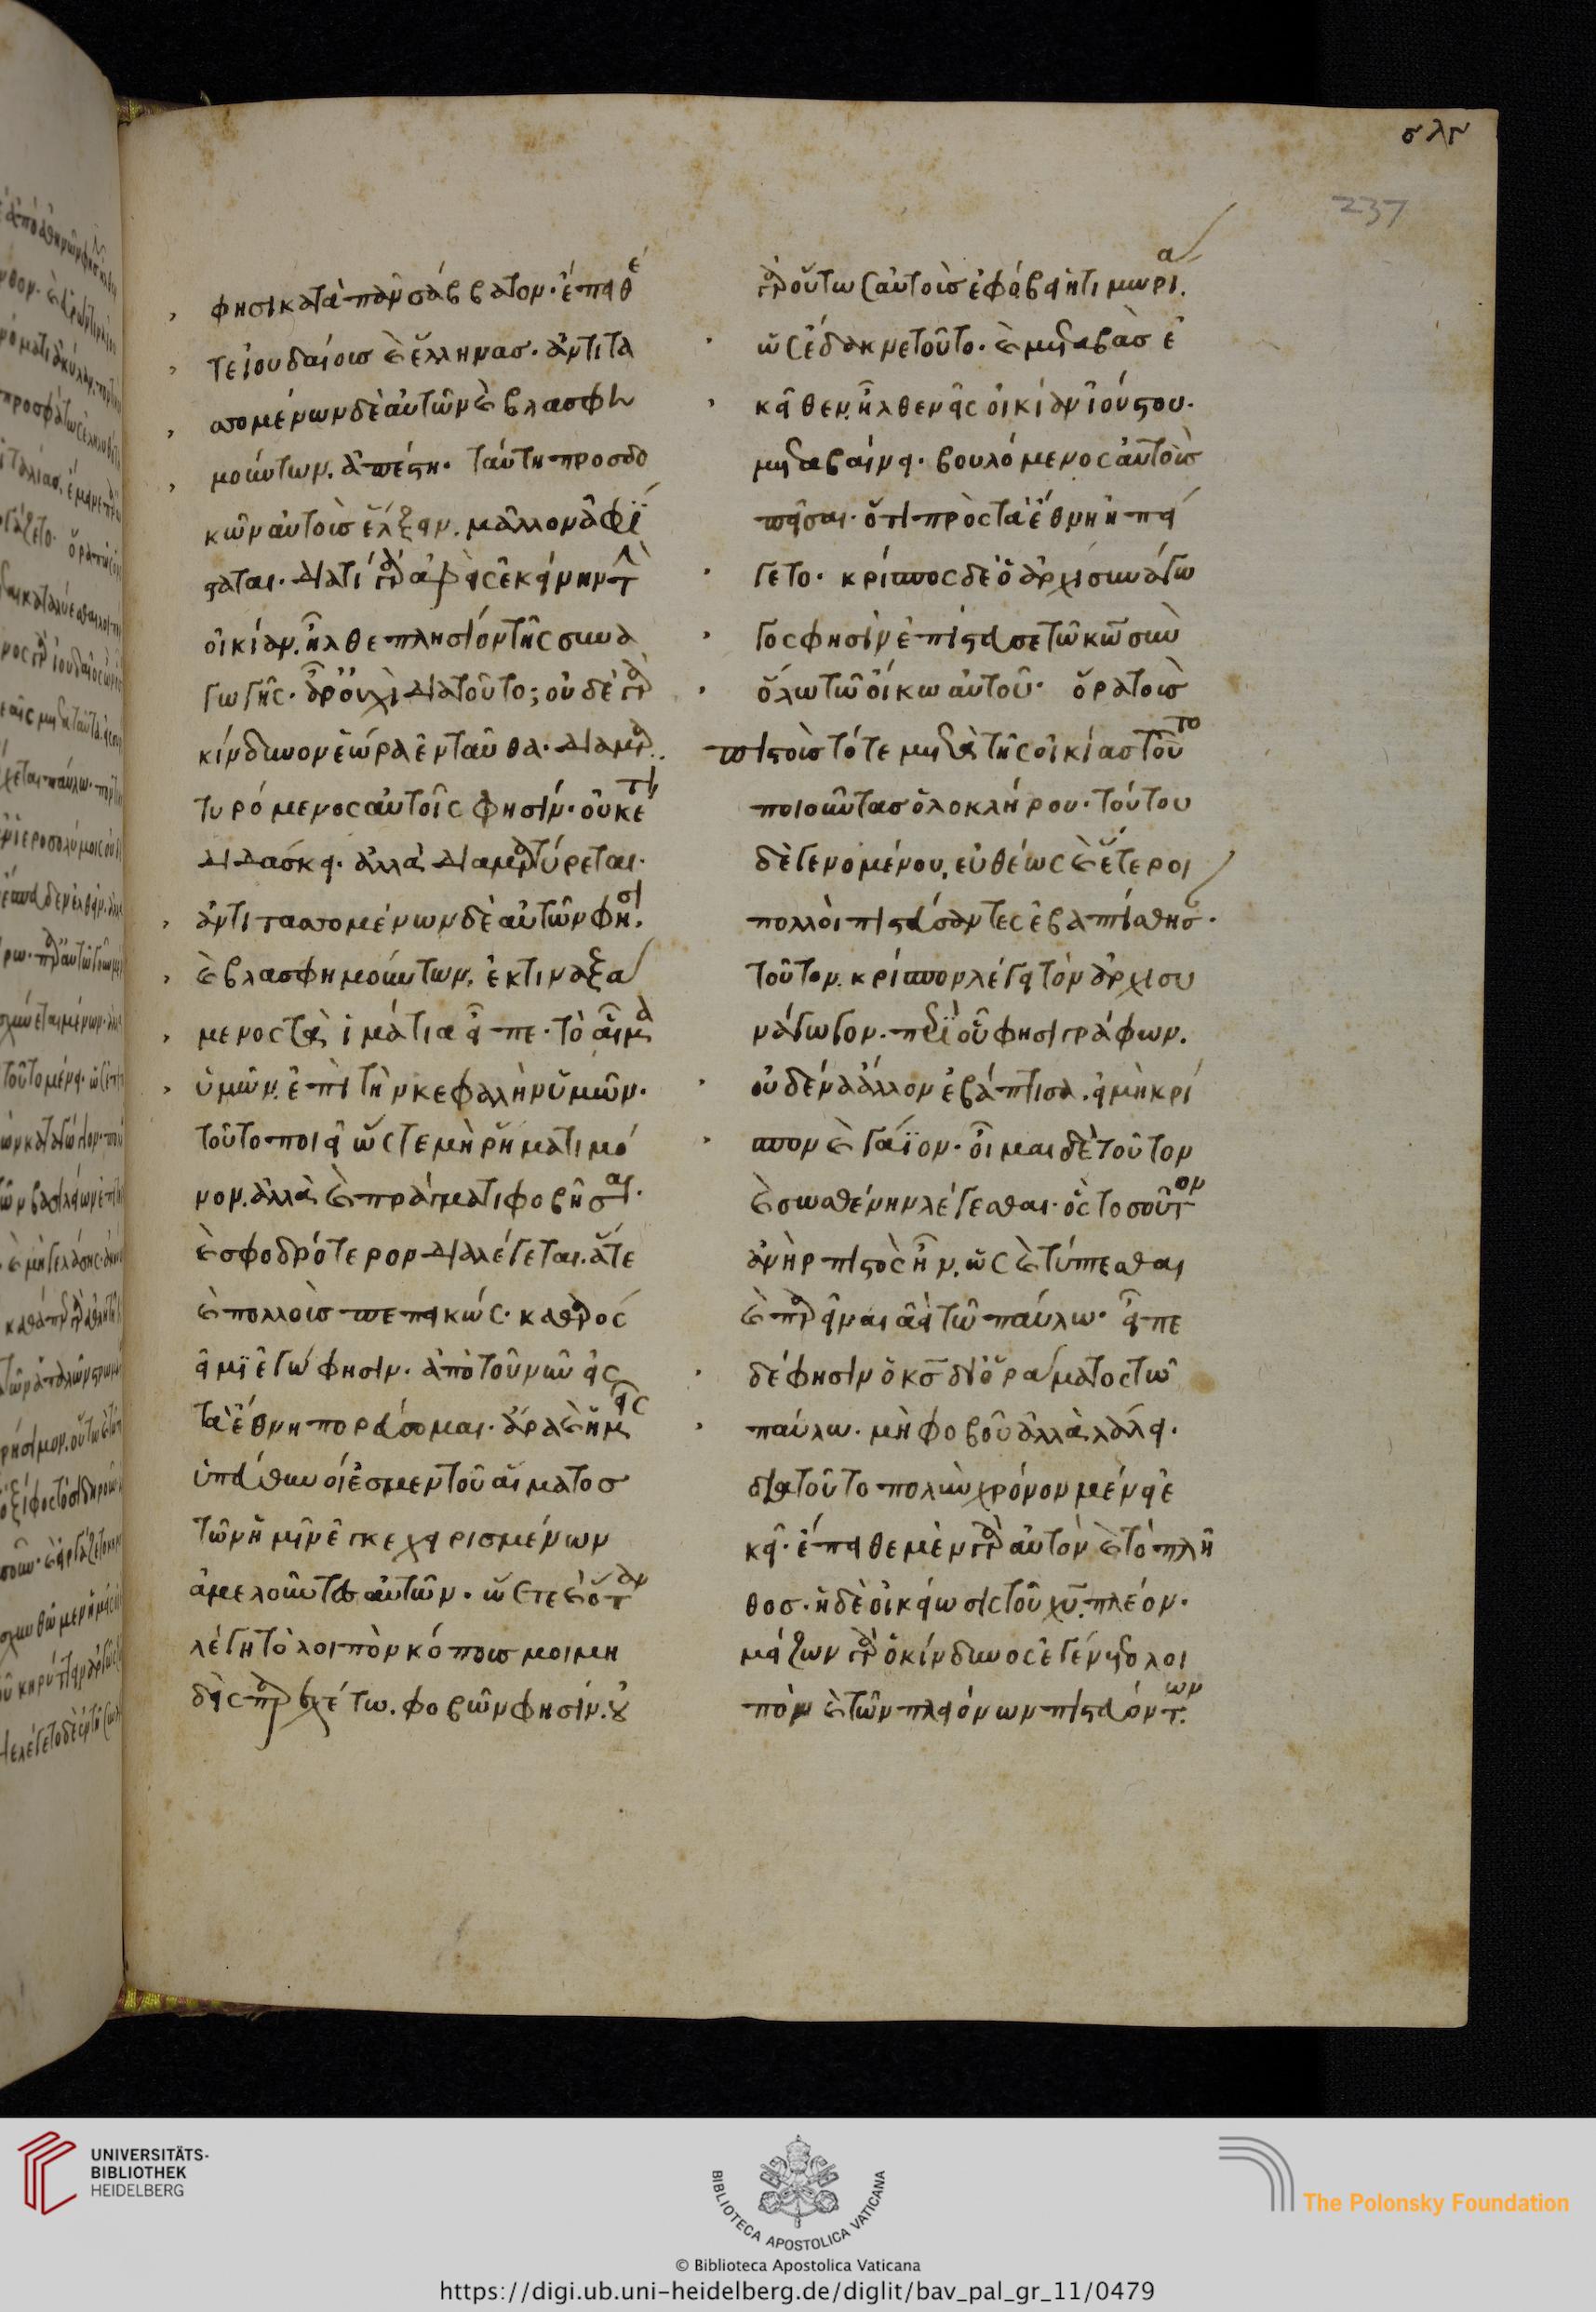 σλζ
237
φησὶ κατὰ πᾶν σάββατον. ἔπειθέ
τε ἰουδαίοις καὶ ἕλληνας. ἀντιτα
σσομένων δὲ αὐτῶν καὶ βλασφη
μούντων. ἀπέστη. ταύτη προσδο
κῶν αὐτοὺς ἕλξειν. μᾶλλον ἀφί
σταται. διατί γὰρ ἀφεὶς ἐκείνην τὴν
οἰκίαν. ἦλθε πλησίον τῆς συνα
γωγῆς. ἆρ' οὐχὶ διατοῦτο; οὐδὲ γὰρ
κίνδυνον ἑώρα ἐνταῦθα. διαμαρ
τυρόμενος αὐτοῖς φησίν. οὐκέτι
διδάσκει. ἀλλὰ διαμαρτύρεται.
ἀντιτασσομένων δὲ αὐτῶν φησὶ.
καὶ βλασφημούντων, ἐκτιναξά
μενος τὰ ἱμάτια εἶπε. τὸ αἷμα
ὑμῶν ἐπὶ τὴν κεφαλὴν ὑμῶν.
τοῦτο ποιεῖ ὥστε μὴ ῥήματι μό
νον. ἀλλὰ καὶ πράγματι φοβῆσαι.
καὶ σφοδρότερον διαλέγεται. ἅτε
καὶ πολλοὺς πεπεικώς. καθαρὸς
εἰμὶ ἐγώ φησιν. ἀπὸ τοῦ νῦν εἰς
τὰ ἔθνη πορεύσομαι. ἄρα καὶ ἡμεῖς
ὑπεύθυνοί ἐσμεν τοῦ αἵματος
τῶν ἡμῖν ἐγκεχειρισμένων
ἀμελοῦντες αὐτῶν. ὥστε καὶ ὅταν
λέγη τὸ λοιπὸν κόπους μοι μη
δεὶς παρεχέτω. φοβῶν φησίν. οὐ
γὰρ οὕτως αὐτοὺς ἐφόβει ἡ τιμωρία.
ὡς ἔδακνε τοῦτο. καὶ μεταβὰς ἐ
κεῖθεν. ἦλθεν εἰς οἰκίαν ἰούστου.
μεταβαίνει. βουλόμενος αὐτοὺς
πεῖσαι. ὅτι πρὸς τὰ ἔθνη ἠπεί
γετο. κρίσπος δὲ ὁ ἀρχισυνάγω
γος φησὶν ἐπίστευσε τῶ κω σὺν
ὅλω τῶ οἴκω αὐτοῦ. ὅρα τοὺς
πιστοὺς τότε μετὰ τῆς οἰκίας τοῦτο
ποιοῦντας ὁλοκλήρου. τούτου
δὲ γενομένου, εὐθέως καὶ ἕτεροι
πολλοὶ πιστεύσαντες ἐβαπτίσθησ.
τοῦτον κρίσπον λέγει τὸν ἀρχισυ
νάγωγον. περὶ οὗ φησὶ γράφων.
οὐδένα ἄλλον ἐβάπτισα. εἰ μὴ κρί
σπον καὶ γάϊον. οἶμαι δὲ τοῦτον
καὶ σωσθένην λέγεσθαι. ὃς τοσοῦτον
ἀνὴρ πιστὸς ἦν. ὡς καὶ τύπτεσθαι
καὶ παρεῖναι ἀεὶ τῶ παύλω. εἶπε
δέ φησιν ὁ κς δι' ὁράματος τῶ
παύλω. μὴ φοβοῦ ἀλλὰ λάλει.
διατοῦτο πολὺν χρόνον μένει ἐ
κεῖ. ἔπειθε μὲν γὰρ αὐτὸν καὶ τὸ πλῆ
θος. ἡ δὲ οἰκείωσις τοῦ χυ. πλέον.
μείζων γὰρ ὁ κίνδυνος ἐγένετο λοι
πὸν καὶ τῶν πλειόνων πιστευόντων.
UNIVERSITÄTS-
BIBLIOTHEK
HEIDELBERG
BIBLIOTECA APOSTOLICA VATICANA
© Biblioteca Apostolica Vaticana
The Polonsky Foundation
https://digi.ub.uni-heidelberg.de/diglit/bav_pal_gr_11/0479